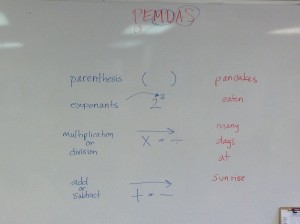 PEMDAS
parenthesis ( ) pancakes
exponants 2³ eaten
multiplication or division x ÷ many days at
add or subtract + - sunrise